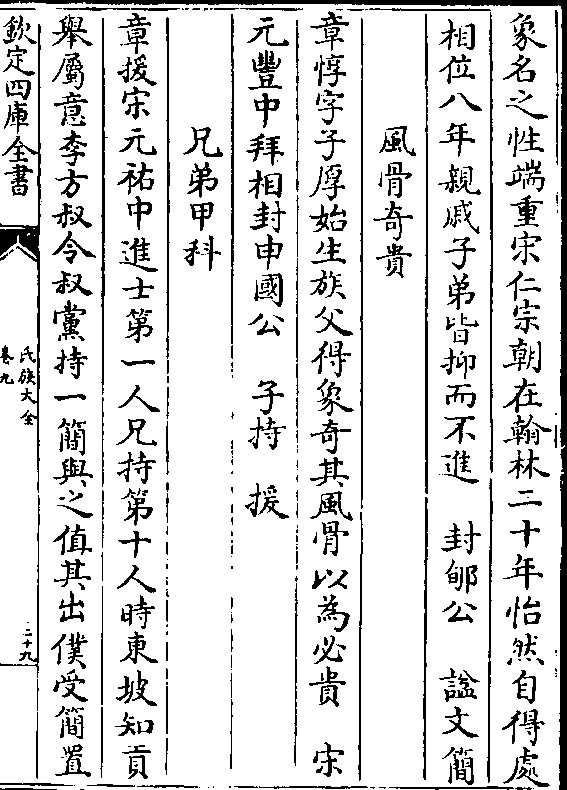 象名之性端重宋仁宗朝在翰林二十年怡然自得處
相位八年親戚子弟皆抑而不進　封郇公　諡文簡
風骨奇貴
章惇字子厚始生族父得象奇其風骨以為必貴　宋
元豐中拜相封申國公　子持　援
兄弟甲科
章援宋元祐中進士第一人兄持第十人時東坡知貢
舉屬意李方叔令叔黨持一簡與之值其出僕受簡置
欽定四庫全書
氏族大全
卷九
三十九